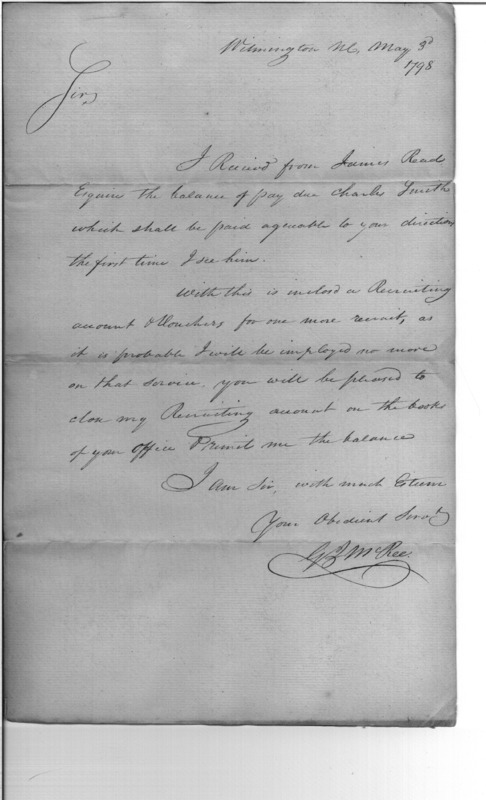 Wilmington NC, May 3d
1798
Sir,
I Receivd from James Read
Esquire the balance of pay due Charles Smith
which shall be paid agreeable to your direction
the first time I see him.
With this is inclosd a Recruiting
account & Vouchers for one more recruit, as
it is probable I will be imployed no more
on that service. you will be pleased to
close my Recruiting account on the books
of your office & remit me the balance
I am Sir, with much Esteem
Your Obedient Servt
G J McRee.